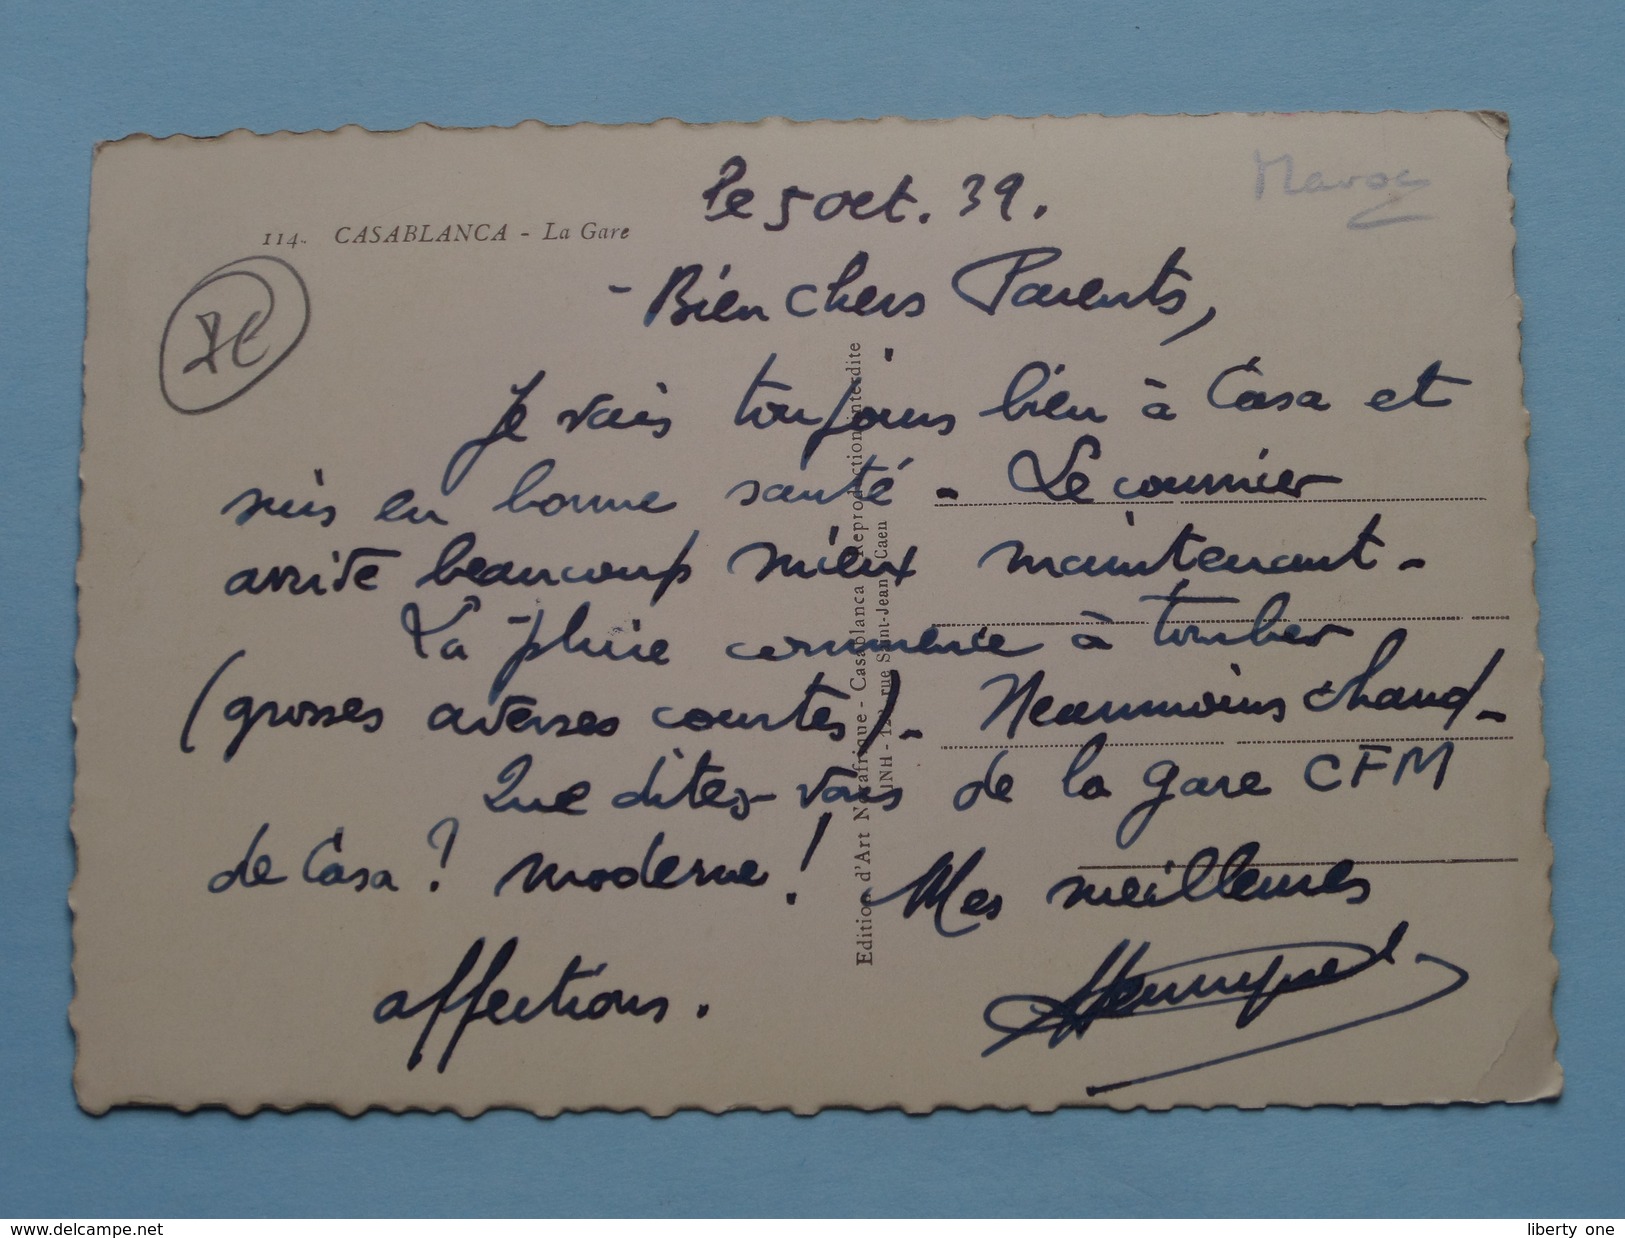 le 5 oct. 39.
Maroc
114. CASABLANCA - La Gare
- Bien chers Parents,
Je vais toujours bien à Casa et
suis en bonne santé - Le courrier
arrive beaucoup mieux maintenant -
La pluie commence à tomber
(grosses averses courtes) - Néanmoins chaud -
Que dites-vous de la gare CFM
de Casa ? moderne ! Mes meilleures
affections.
Edition d'Art Norafrique - Casablanca Reproduction interdite
rue Saint-Jean Caen
www.delcampe.net
liberty_one